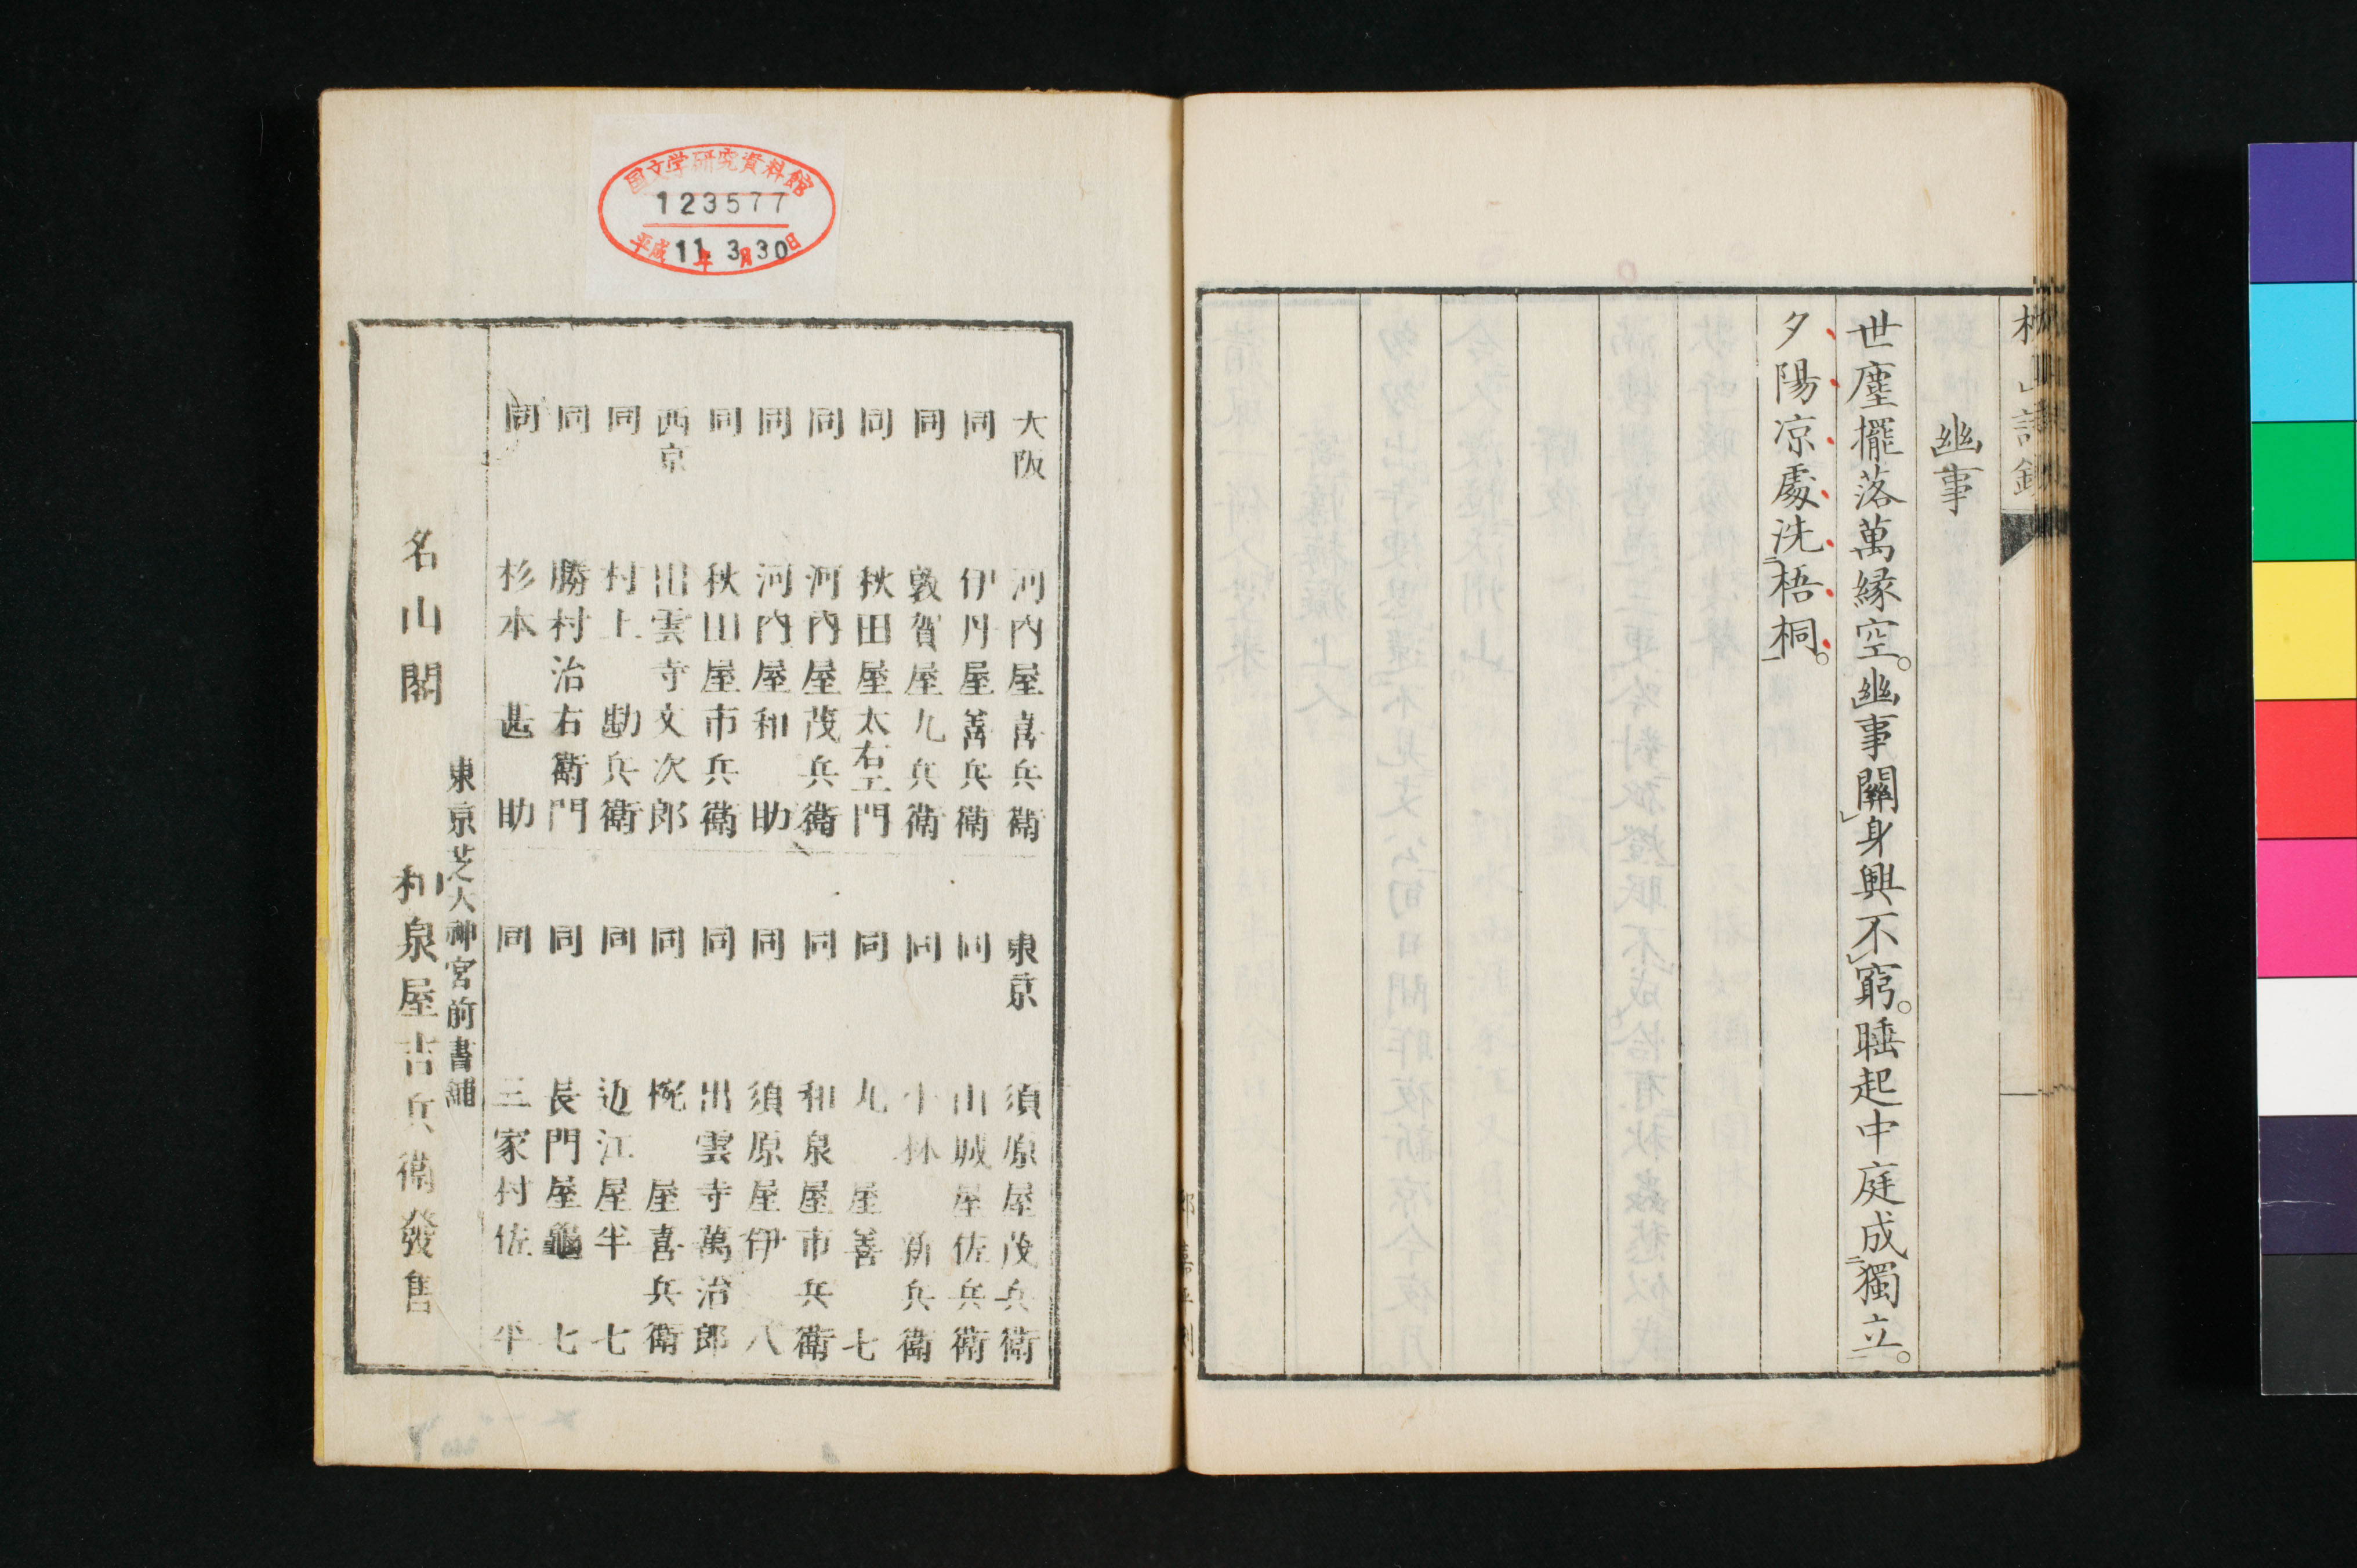 幽事
世塵擺落萬縁空。幽事關身興不窮。睡起中庭成獨立。
夕陽凉處洗梧桐。
国文学研究資料館
123577
平成11年3月30日
大阪 河内屋喜兵衞
同 伊丹屋善兵衞
同 敦賀屋九兵衞
同 秋田屋太右エ門
同 河内屋茂兵衞
同 河内屋和助
同 秋田屋市兵衞
西京 出雲寺文次郎
同 村上勘兵衞
同 勝村治右衞門
同 杉本甚助
東京 須原屋茂兵衞
同 山城屋佐兵衞
同 小林新兵衞
同 丸屋善七
同 和泉屋市兵衞
同 須原屋伊八
同 出雲寺萬治郎
同 椀屋喜兵衞
同 近江屋半七
同 長門屋龜七
同 三家村佐平
東京芝大神宮前書舖
名山閣 和泉屋吉兵衞發售